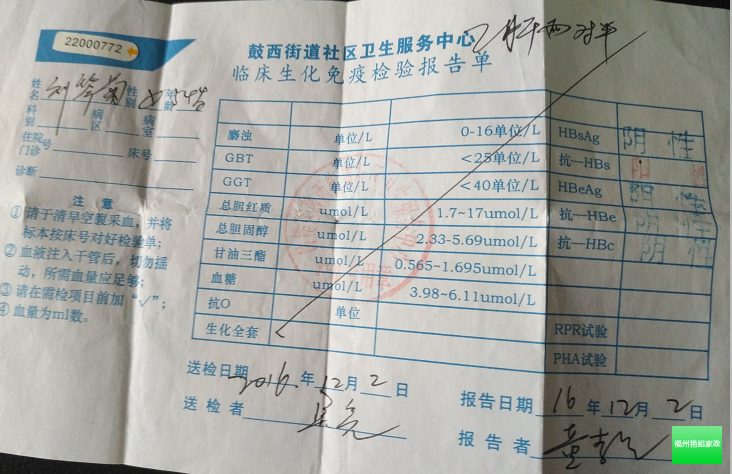 22000772
鼓西街道社区卫生服务中心
临床生化免疫检验报告单
姓名 刘 性别 女 年龄
科别 病区 病室
住院号
门诊 床号
诊断
注意
① 请于清早空腹采血，并将
标本按床号对好检验单；
② 血液注入干管后，切勿摇
动，所需血量应足够；
③ 请在需检项目前加“√”；
④ 血量为ml数。
麝浊 单位/L 0-16单位/L HBsAg 阴性
GBT 单位/L <25单位/L 抗—HBs
GGT 单位/L <40单位/L HBeAg 阴性
总胆红质 umol/L 1.7~17umol/L 抗—HBe 阴性
总胆固醇 umol/L 2.33-5.69umol/L 抗—HBc 阴性
甘油三酯 umol/L 0.565~1.695umol/L
血糖 umol/L 3.98~6.11umol/L
抗O 单位
生化全套 RPR试验
PHA试验
送检日期 2016年12月2日
报告日期 16年12月2日
送检者
报告者
福州艳姐家政